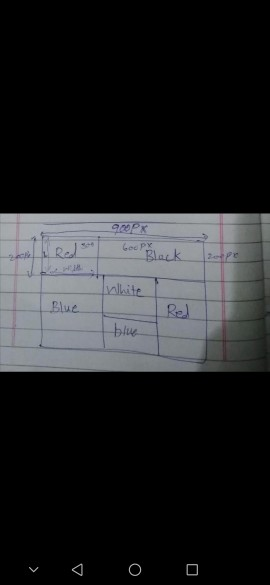 900PX
200PX
Red
600PX
Black
200PX
White
Blue
Red
blue